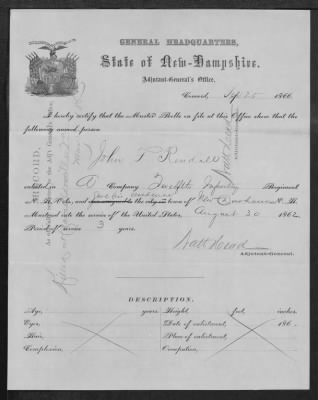 GENERAL HEADQUARTERS,
State of New-Hampshire.
Adjutant-General's Office,
Concord, Sep 25 1866
I hereby certify that the Muster Rolls on file at this Office show that the
following named person
John P. Rendall
enlisted in A Company Twelfth Infantry Regiment
N. H. Vols, and the town of New Durham N. H.
Mustered into the service of the United States, August 30 1862
Period of service 3 years.
Natt Head
Adjutant-General.
RECORD.
Natt Head
DESCRIPTION.
Age, years. Height, feet, inches.
Eyes, Date of enlistment, 186
Hair, Place of enlistment,
Complexion, Occupation,